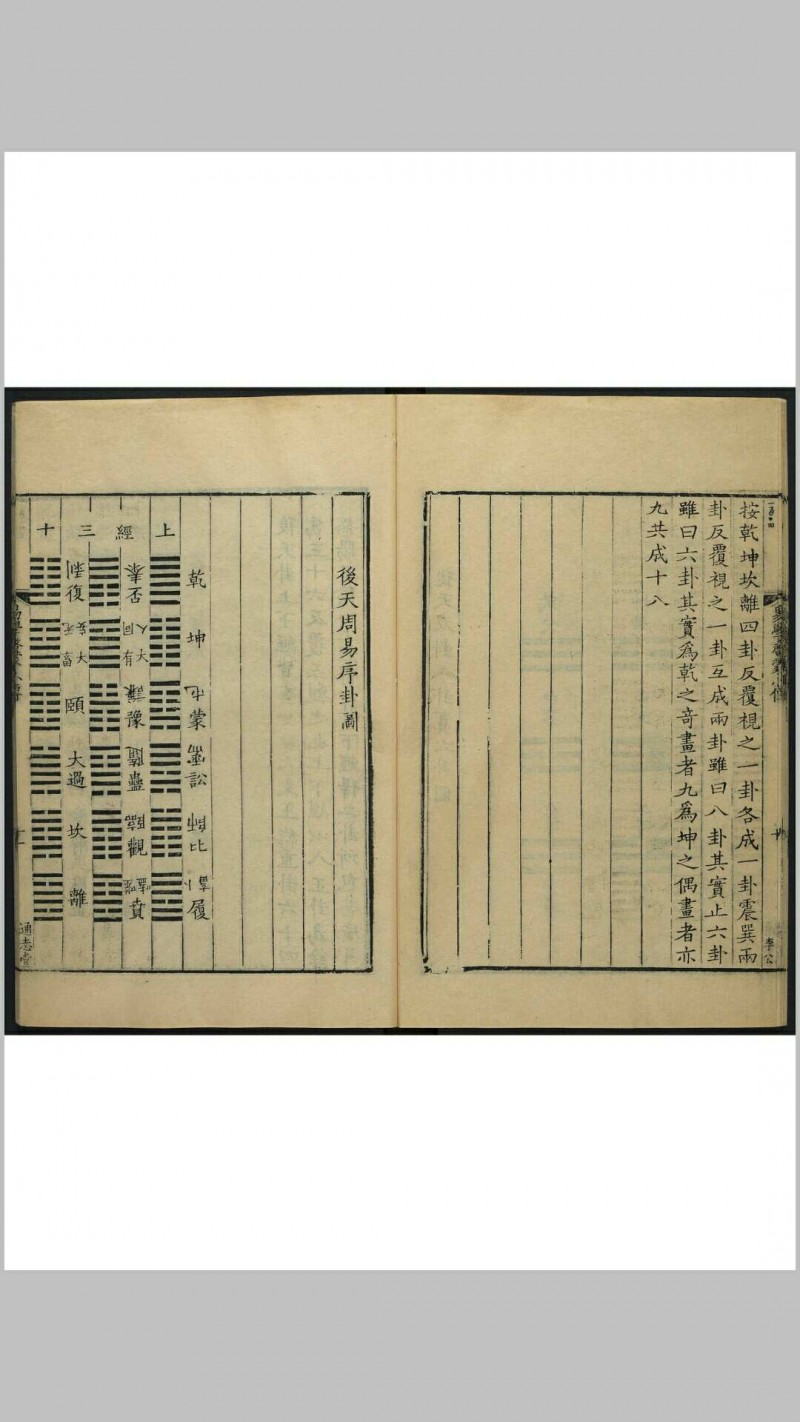 按乾坤坎離四卦反覆視之一卦各成一卦震巽兩
卦反覆視之一卦互成兩卦雖曰八卦其實止六卦
雖曰六卦其實為乾之奇畫者九為坤之偶畫者亦
九共成十八
李公
後天周易序卦圖
上經三十
乾 坤 屯蒙 需訟 師比 小畜履
泰否 同人大有 謙豫 隨蠱 臨觀 噬嗑賁
剝復 无妄大畜 頤 大過 坎 離
通志堂